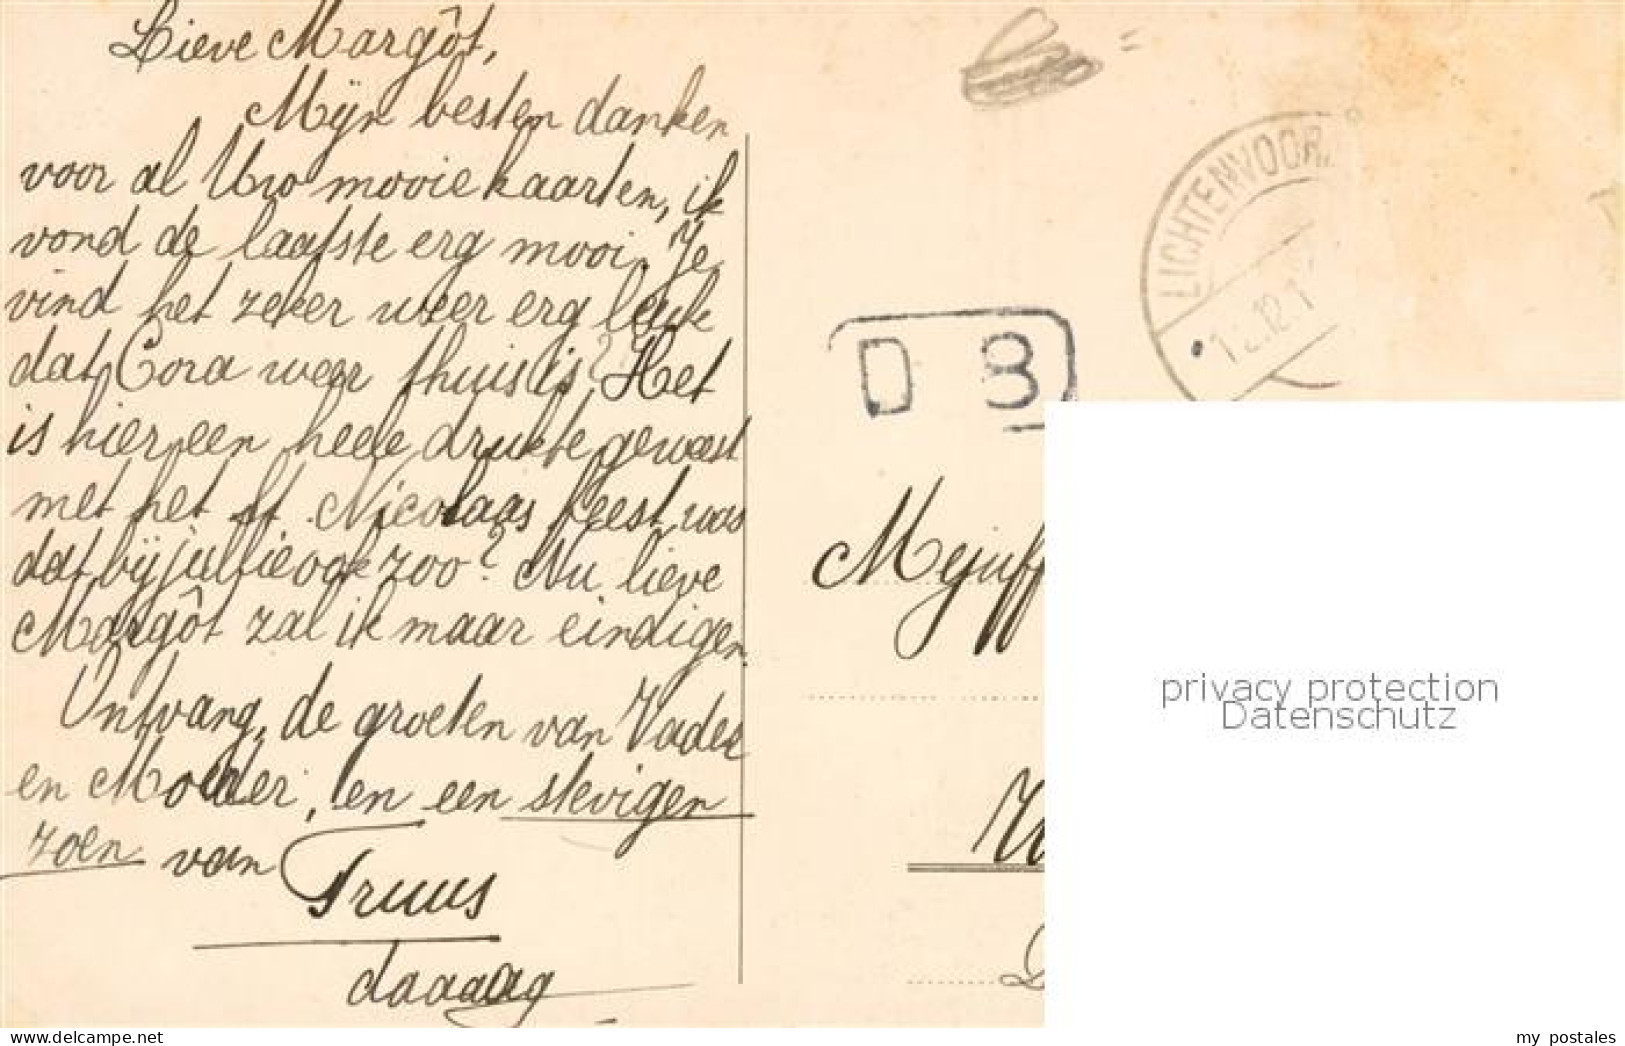 Lieve Margôt,
Mijn besten danken
voor al Uw mooie kaarten, ik
vond de laatste erg mooi. Je
vind het zeker weer erg leuk
dat Cora weer thuis is? Het
is hier een heele drukte geweest
met het St. Nicolaas feest was
dat bij jullie ook zoo? Nu lieve
Margôt zal ik maar eindigen.
Ontvang de groeten van Vader
en Moeder, en een stevigen
zoen van
Truus
daaaag
LICHTENVOOR
12.12.1
D B
Mejuff
privacy protection
Datenschutz
www.delcampe.net
my postales